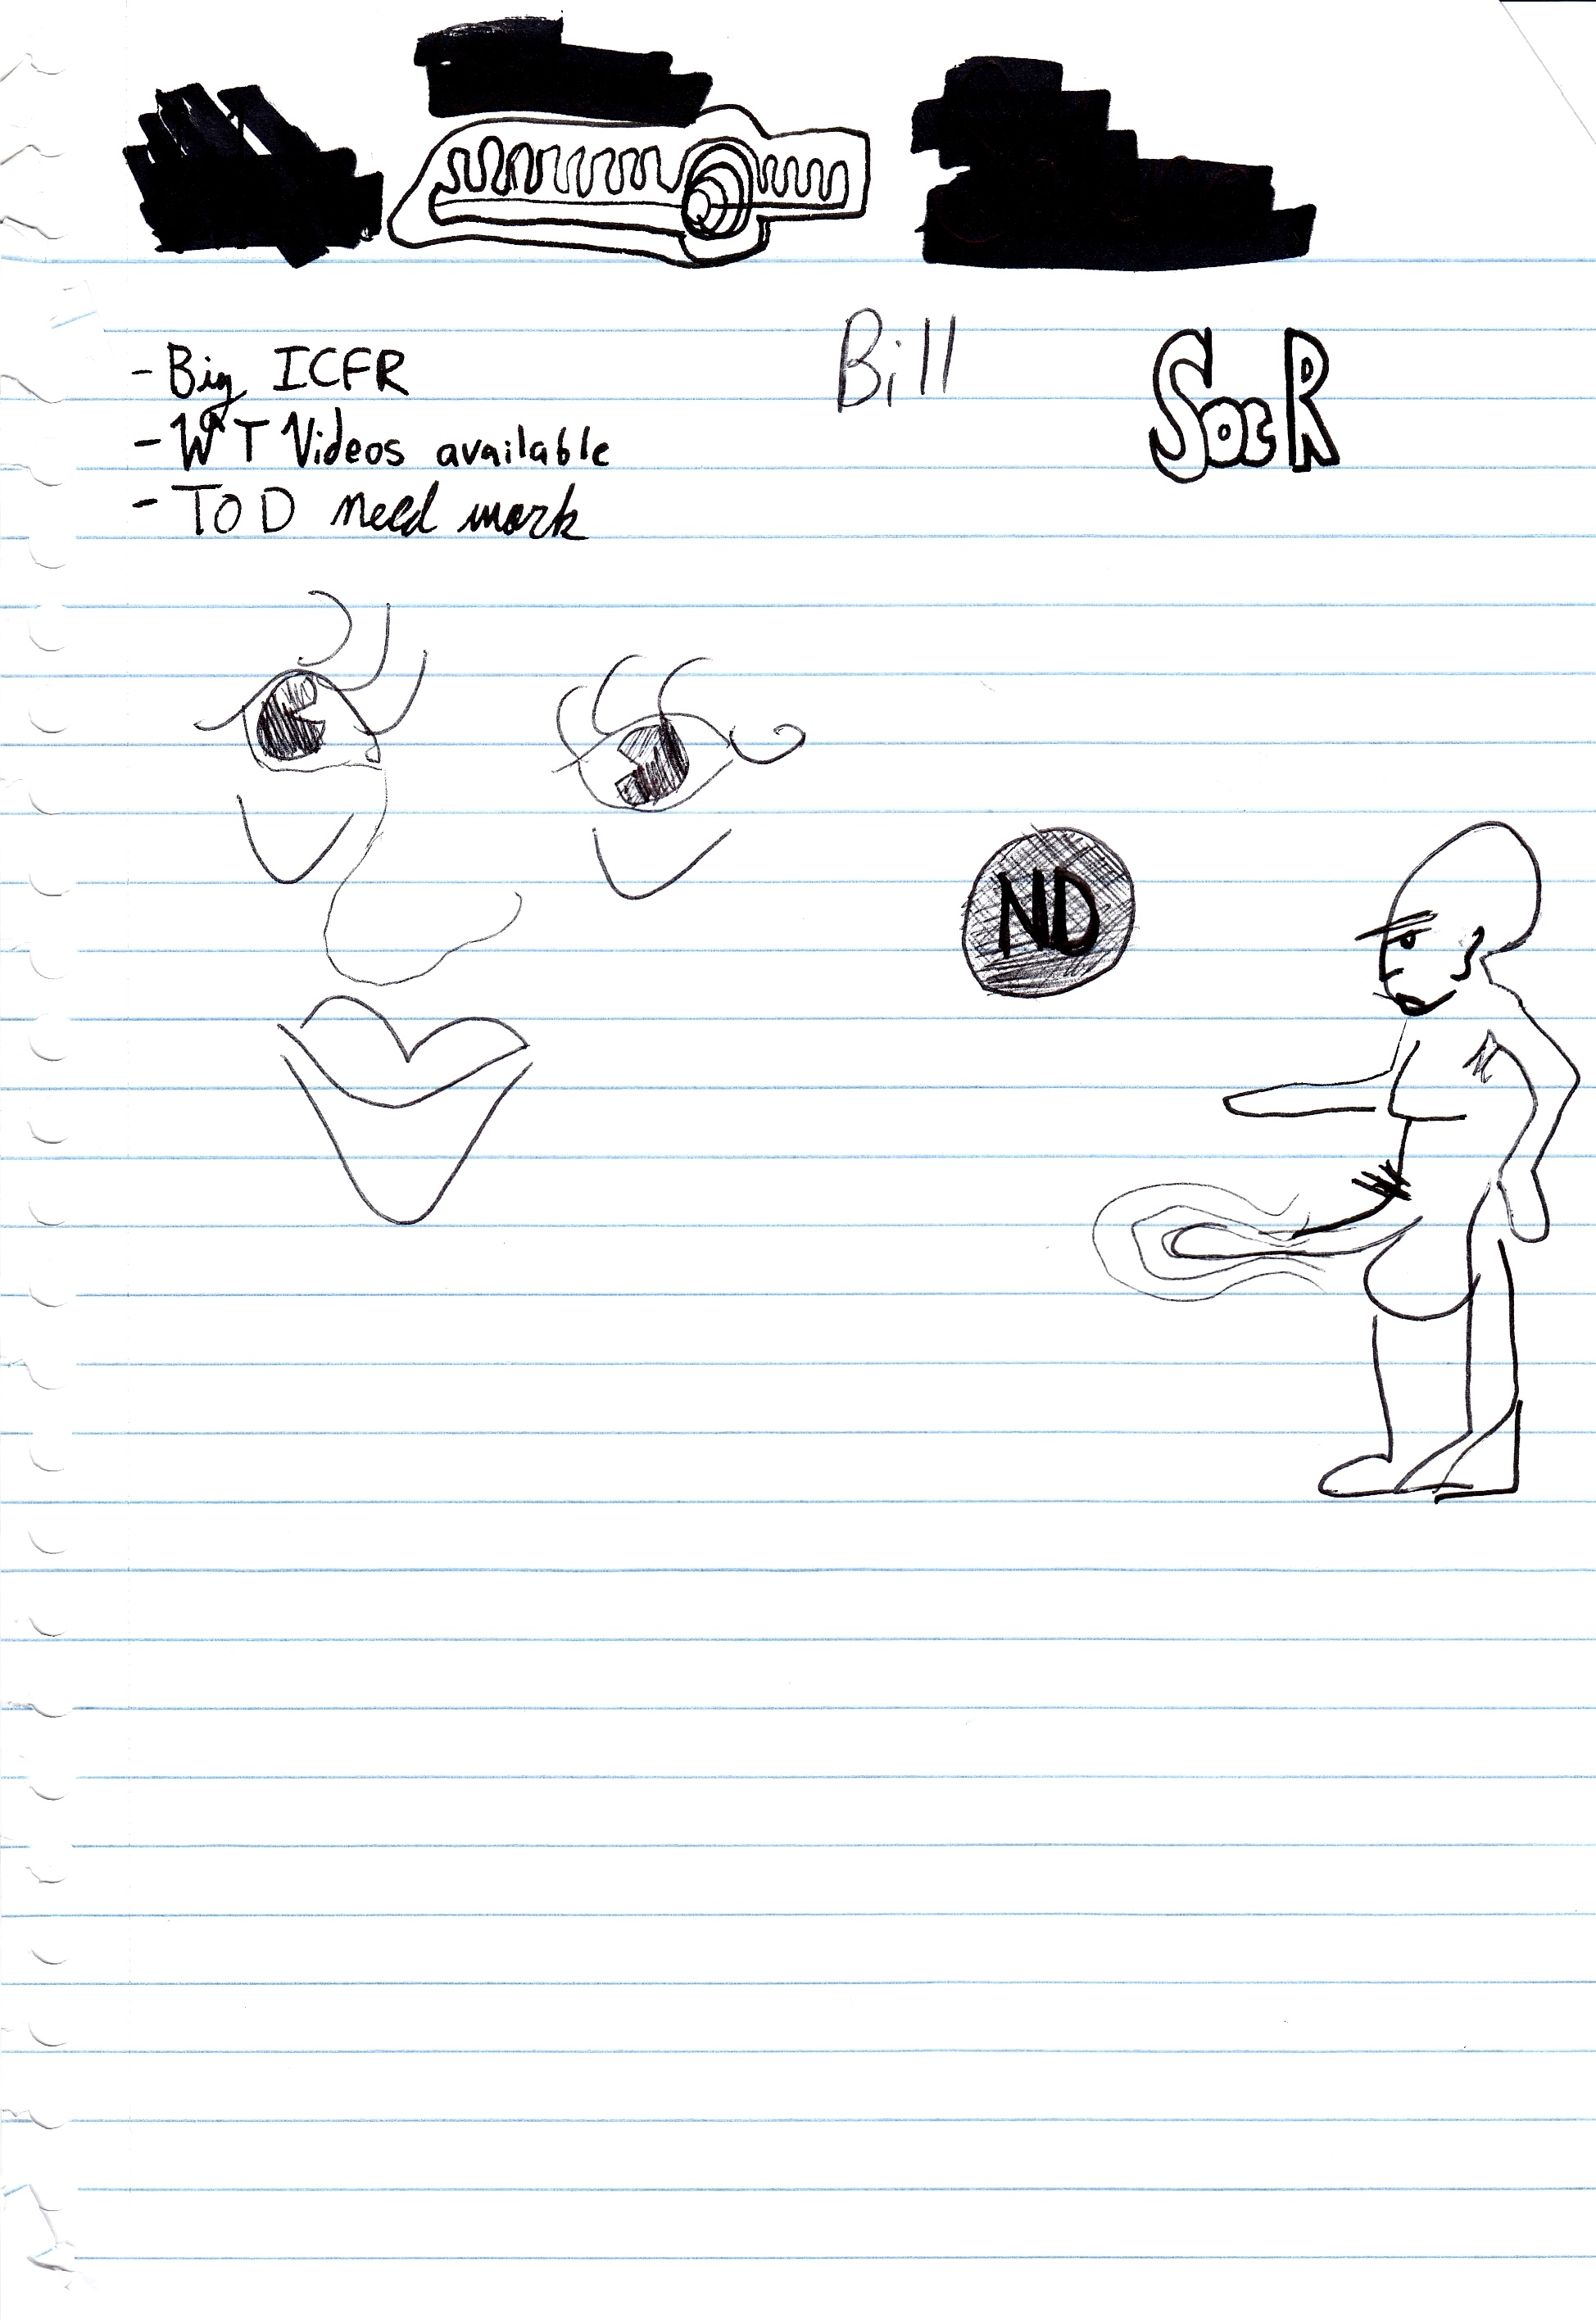 - Big ICFR
- WT Videos available
- TOD need work
Bill
SocR
ND